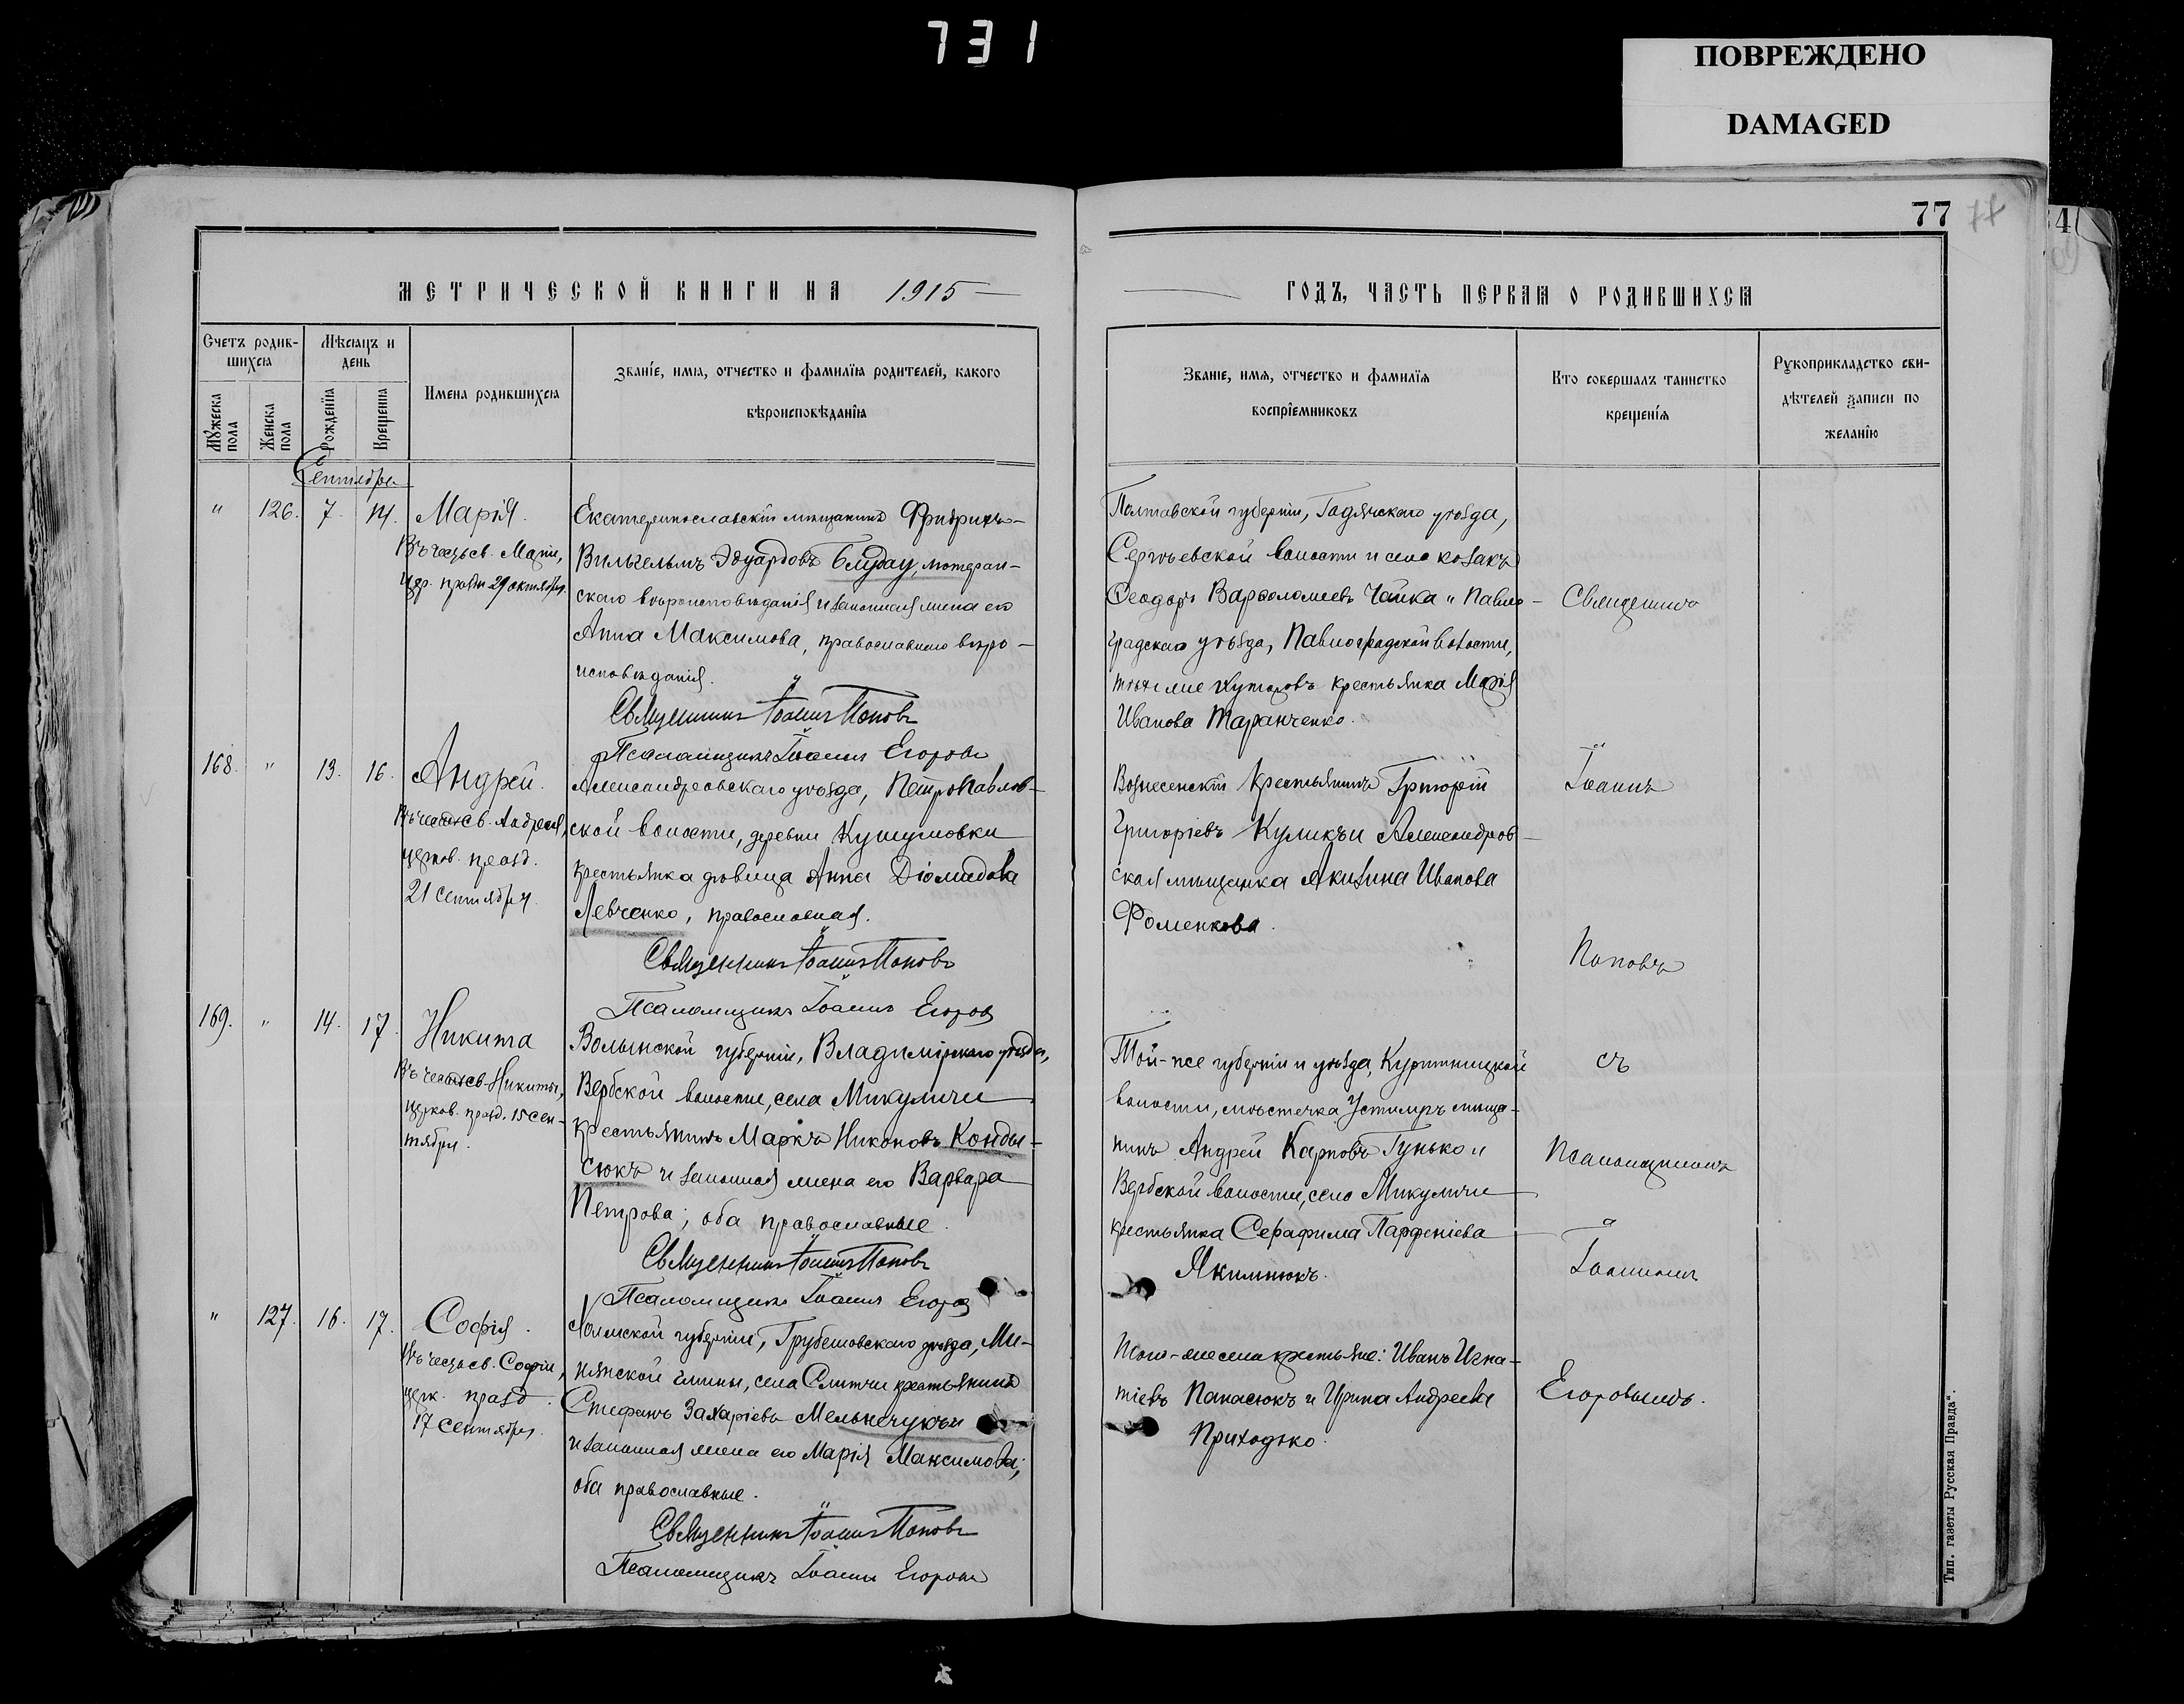 731
ПОВРЕЖДЕНО
DAMAGED
77
МЕТРИЧЕСКОЙ КНИГИ НА 1915
Счетъ родив-
шихся
Мѣсяцъ и
день
Мужеска
пола
Женска
пола
Рожденїя
Крещенїя
Имена родившихся
Званїе, имя, отчество и фамилїя родителей, какого
вѣроисповѣданїя
Сентябрь
" 126. 7. 14. Марія.
Въ честь св. Маріи,
цер. праздн 29 октября.
Екатеринославскій мѣщанинъ Фридрихъ-
Вильгельмъ Эдуардовъ Блудау, лютеран-
скаго вѣроисповѣданія и законная жена его
Анна Максимова, православнаго вѣро-
исповѣданія.
Священникъ Іоаннъ Поповъ
Псаломщикъ Іоаннъ Егоровъ
168. " 13. 16. Андрей.
Въ честь св. Андрея,
церков. празд.
21 Сентября.
Александровскаго уѣзда, Петропавлов-
ской волости, деревни Кушумовки
крестьянка дѣвица Анна Діомидова
Левченко, православная.
Священникъ Іоаннъ Поповъ
Псаломщикъ Іоаннъ Егоровъ
169. " 14. 17. Никита
Въ честь св. Никиты,
церков. празд. 15 Сен-
тября.
Волынской губерніи, Владимірскаго уѣзда,
Вербской волости, села Микуличи
крестьянинъ Маркъ Никоновъ Конды-
сюкъ и законная жена его Варвара
Петрова; оба православные.
Священникъ Іоаннъ Поповъ
Псаломщикъ Іоаннъ Егоровъ
" 127. 16. 17. Софія.
Въ честь св. Софіи,
церк. празд.
17 Сентября.
Холмской губерніи, Грубешовскаго уѣзда, Ми-
нянской гмины, села Слипчи крестьянинъ
Стефанъ Захаріевъ Мельничукъ
и законная жена его Марія Максимова;
оба православные.
Священникъ Іоаннъ Поповъ
Псаломщикъ Іоаннъ Егоровъ
ГОДЪ, ЧАСТЬ ПЕРВАЯ О РОДИВШИХСЯ
Званїе, имя, отчество и фамилїя
воспрїемниковъ
Кто совершалъ таинство
крещенїя
Рукоприкладство сви-
дѣтелей записи по
желанїю
Полтавской губерніи, Гадячскаго уѣзда,
Сергѣевской волости и села козакъ
Ѳеодоръ Варѳоломеевъ Чайка и Павло-
градскаго уѣзда, Павлоградской волости,
хуторовъ крестьянка Марія
Иванова Таранченко.
Вознесенскій крестьянинъ Григорій
Григоріевъ Куликъ и Александров-
ская мѣщанка Акилина Иванова
Фоменкова.
Той-же губерніи и уѣзда, Купительской
волости, мѣстечка Устилугъ мѣща-
нинъ Андрей Карповъ Гунько и
Вербской волости, села Микуличи
крестьянка Серафима Парфеніева
Якимнюкъ.
Того-же села крестьяне: Иванъ Игна-
тіевъ Панасюкъ и Ирина Андреева
Приходько.
Священникъ
Іоаннъ
Поповъ
съ
Псаломщикомъ
Іоанномъ
Егоровымъ.
Тип. газеты „Русская Правда“.